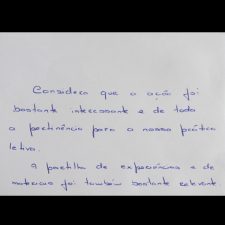 Considera que a ação foi
bastante interessante e de toda
a pertinência para a nossa prática
letiva.
A partilha de experiências e de
materiais foi também bastante relevante.